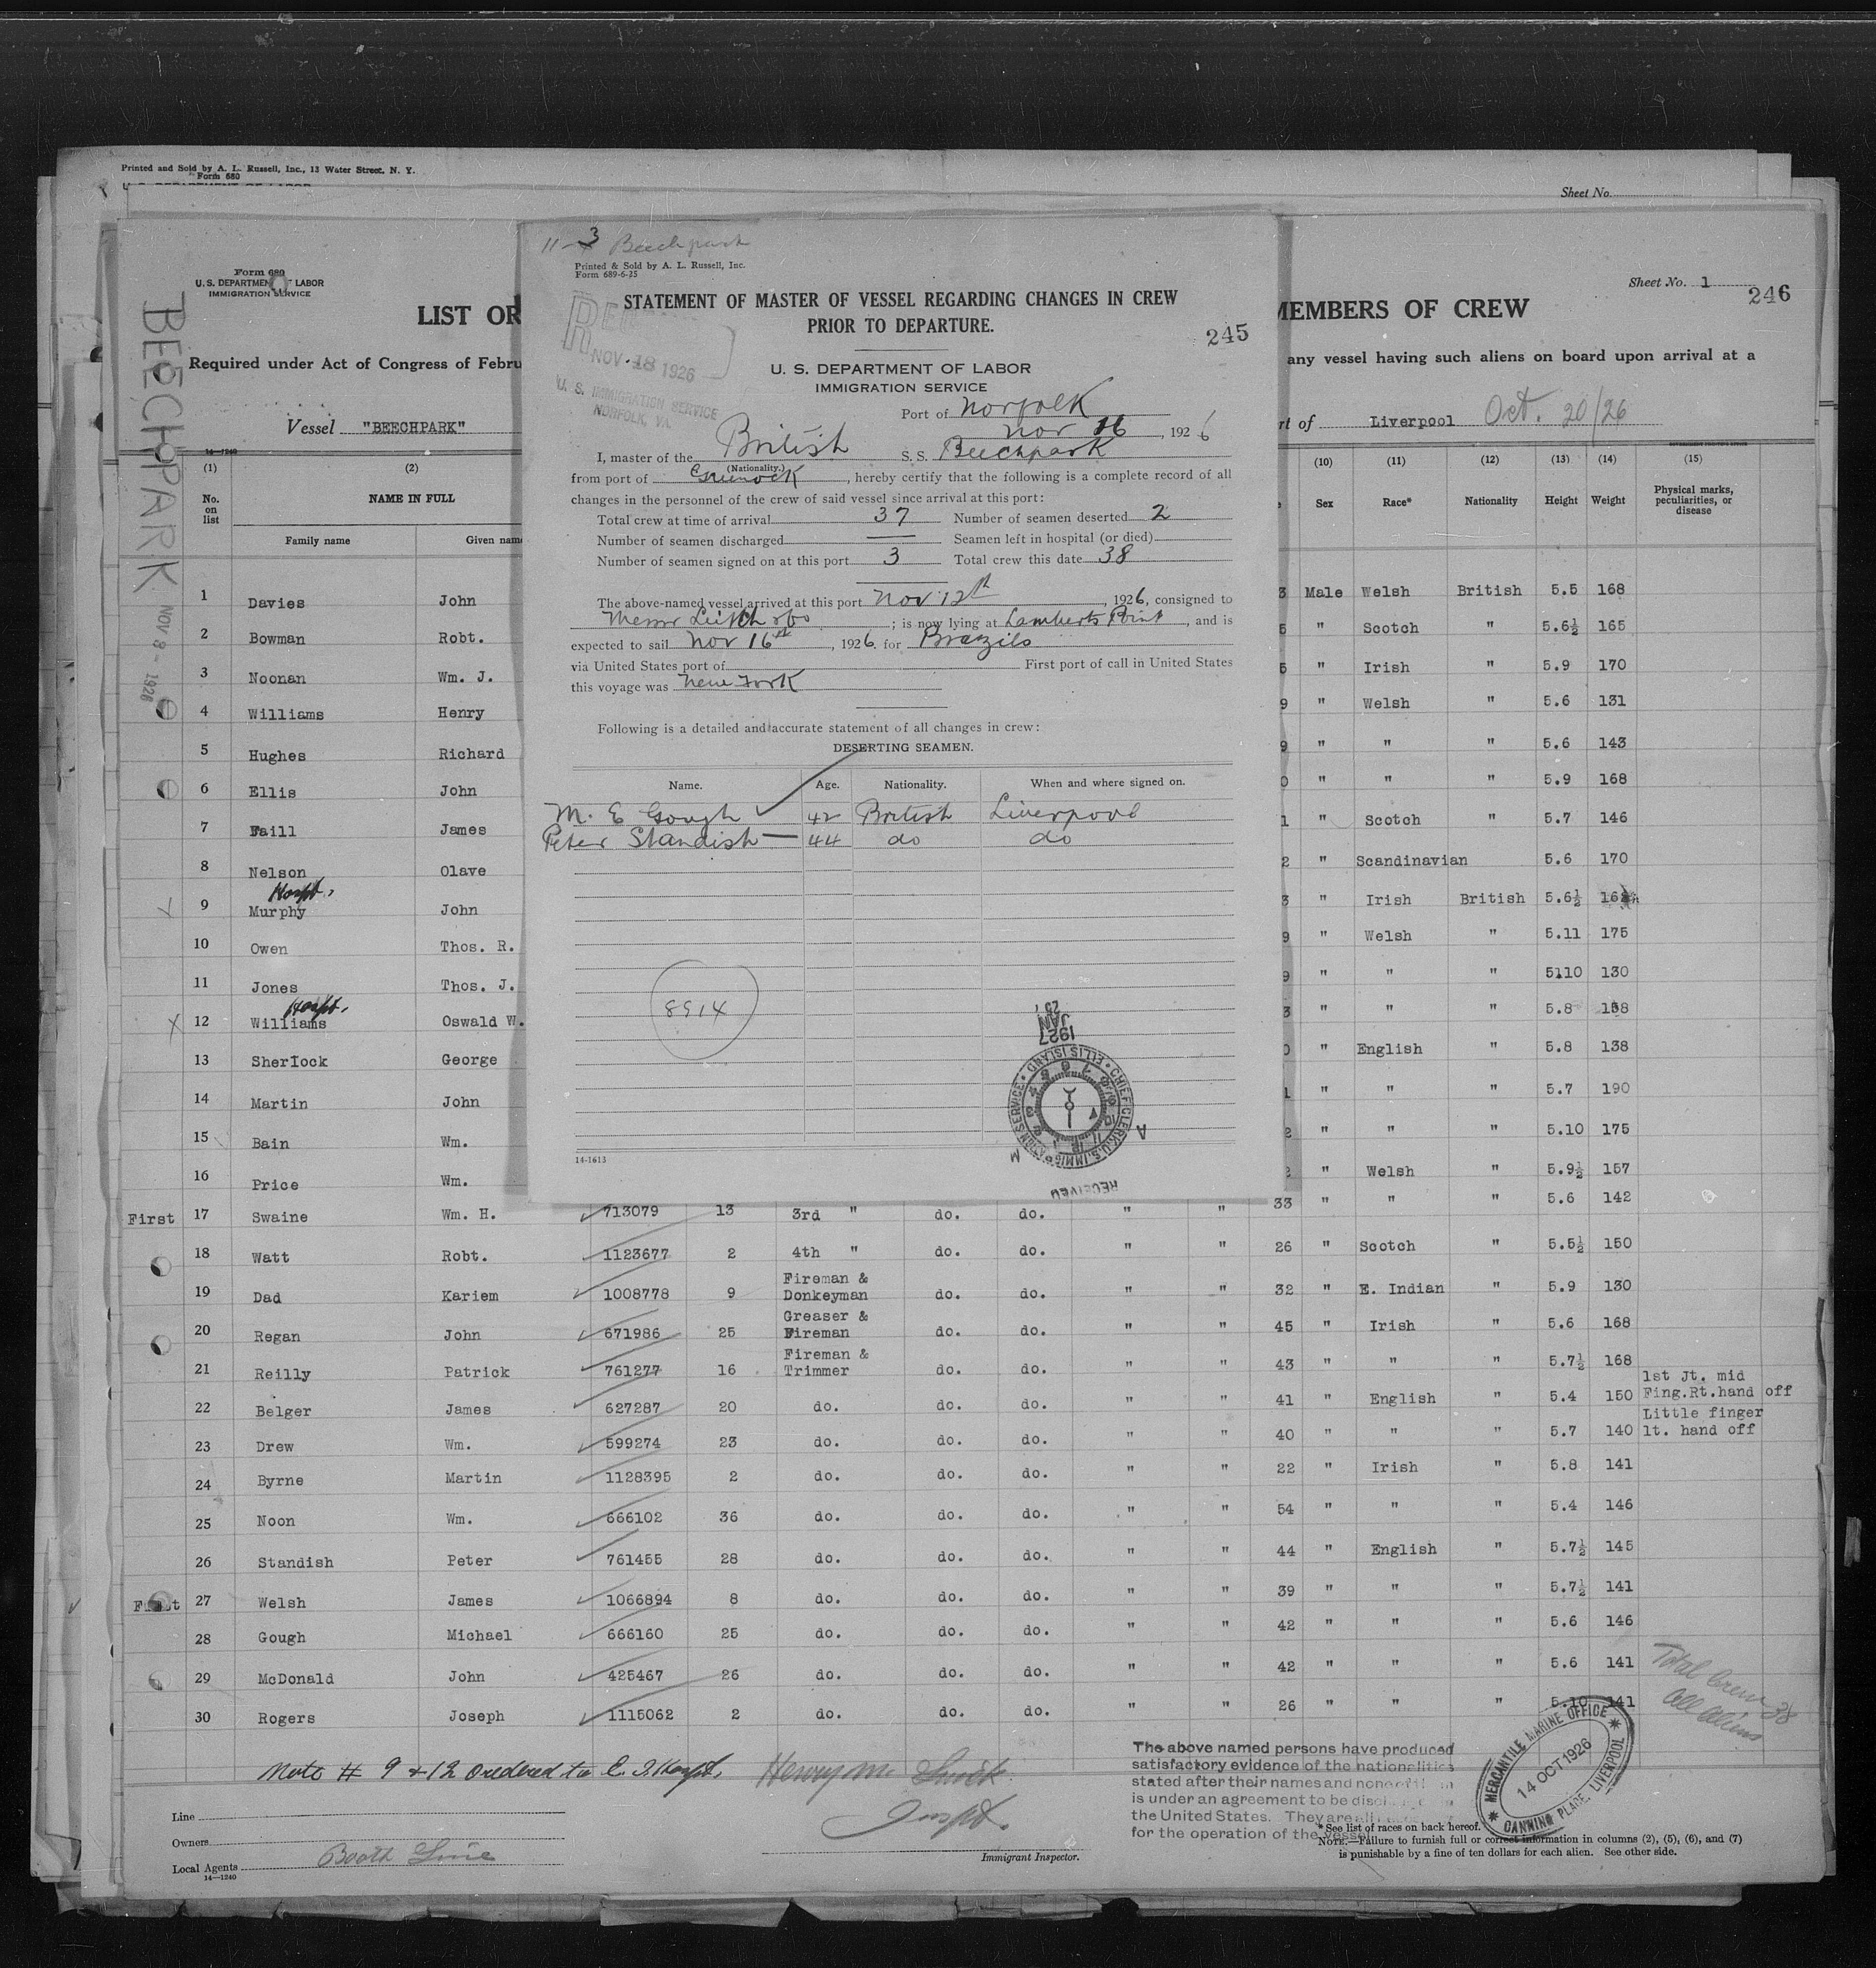 Printed and Sold by A. L. Russell, Inc., 13 Water Street, N. Y.
Form 680
U. S. DEPARTMENT OF LABOR
Sheet No.
Form 680
U. S. DEPARTMENT OF LABOR
IMMIGRATION SERVICE
Sheet No. 1
246
LIST OR
MEMBERS OF CREW
Required under Act of Congress of Febru
any vessel having such aliens on board upon arrival at a
Vessel "BEECHPARK"
rt of Liverpool Oct. 20/26
BEECHPARK
NOV 8 - 1926
14-1240
(1) (2) (10) (11) (12) (13) (14) (15)
No. on list NAME IN FULL Sex Race* Nationality Height Weight Physical marks, peculiarities, or disease
Family name Given name
11-3 Beechpark
Printed & Sold by A. L. Russell, Inc.
Form 689-6-25
STATEMENT OF MASTER OF VESSEL REGARDING CHANGES IN CREW
PRIOR TO DEPARTURE.
245
NOV 18 1926
U. S. IMMIGRATION SERVICE
NORFOLK, VA.
U. S. DEPARTMENT OF LABOR
IMMIGRATION SERVICE
Port of Norfolk
Nov 16, 1926
I, master of the British S. S. Beechpark
(Nationality.)
from port of Greenock, hereby certify that the following is a complete record of all
changes in the personnel of the crew of said vessel since arrival at this port:
Total crew at time of arrival 37 Number of seamen deserted 2
Number of seamen discharged — Seamen left in hospital (or died)
Number of seamen signed on at this port 3 Total crew this date 38
The above-named vessel arrived at this port Nov 12th, 1926, consigned to
Messrs Leitch & Co; is now lying at Lamberts Point, and is
expected to sail Nov 16th, 1926. for Brazils
via United States port of First port of call in United States
this voyage was New York
Following is a detailed and accurate statement of all changes in crew:
DESERTING SEAMEN.
Name. Age. Nationality. When and where signed on.
M. E Gough 42 British Liverpool
Peter Standish 44 do do
8914
1927 JAN 25
CHIEF CLERK U.S. IMMIGRATION SERVICE • ELLIS ISLAND •
A M
RECEIVED
14-1613
1 Davies John 3 Male Welsh British 5.5 168
2 Bowman Robt. 5 " Scotch " 5.6½ 165
3 Noonan Wm. J. 5 " Irish " 5.9 170
4 Williams Henry 9 " Welsh " 5.6 131
5 Hughes Richard 9 " " " 5.6 143
6 Ellis John 0 " " " 5.9 168
7 Faill James 1 " Scotch " 5.7 146
8 Nelson Olave 2 " Scandinavian 5.6 170
Hospt.
9 Murphy John 3 " Irish British 5.6½
10 Owen Thos. R. 9 " Welsh " 5.11 175
11 Jones Thos. J. 9 " " " 5110 130
Hospt.
12 Williams Oswald W. 3 " " " 5.8 158
13 Sherlock George 0 " English " 5.8 138
14 Martin John 1 " " " 5.7 190
15 Bain Wm. 2 " " " 5.10 175
16 Price Wm. 2 " Welsh " 5.9½ 157
First 17 Swaine Wm. H. 713079 13 3rd " do. do. " " 33 " " " 5.6 142
18 Watt Robt. 1123677 2 4th " do. do. " " 26 " Scotch " 5.5½ 150
19 Dad Kariem 1008778 9 Fireman & Donkeyman do. do. " " 32 " E. Indian 5.9 130
20 Regan John 671986 25 Greaser & Fireman do. do. " " 45 " Irish " 5.6 168
21 Reilly Patrick 761277 16 Fireman & Trimmer do. do. " " 43 " " " 5.7½ 168
22 Belger James 627287 20 do. do. do. " " 41 " English " 5.4 150 1st Jt. mid Fing.Rt.hand off
23 Drew Wm. 599274 23 do. do. do. " " 40 " " " 5.7 140 Little finger lt. hand off
24 Byrne Martin 1128395 2 do. do. do. " " 22 " Irish " 5.8 141
25 Noon Wm. 666102 36 do. do. do. " " 54 " " " 5.4 146
26 Standish Peter 761455 28 do. do. do. " " 44 " English " 5.7½ 145
First 27 Welsh James 1066894 8 do. do. do. " " 39 " " " 5.7½ 141
28 Gough Michael 666160 25 do. do. do. " " 42 " " " 5.6 146
29 McDonald John 425467 26 do. do. do. " " 42 " " " 5.6 141
30 Rogers Joseph 1115062 2 do. do. do. " " 26 " " " 5.10 141
Total Crew 38
All Aliens
Note # 9 & 12 ordered to E. I. Hospt.
Henry M.
Inspt.
Immigrant Inspector.
The above named persons have produced
satisfactory evidence of the nationalities
stated after their names and none of
is under an agreement to be
the United States. They are all
for the operation of the vessel
MERCANTILE MARINE OFFICE
14 OCT 1926
CANNING PLACE, LIVERPOOL
Line
Owners
Local Agents Booth Line
14-1240
* See list of races on back hereof.
NOTE.—Failure to furnish full or correct information in columns (2), (5), (6), and (7)
is punishable by a fine of ten dollars for each alien. See other side.